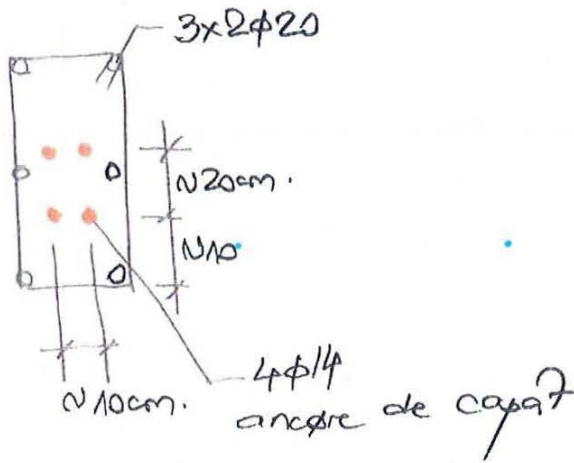 3x2ϕ20
~20cm.
~10
~10cm.
4ϕ14
ancore de capăt